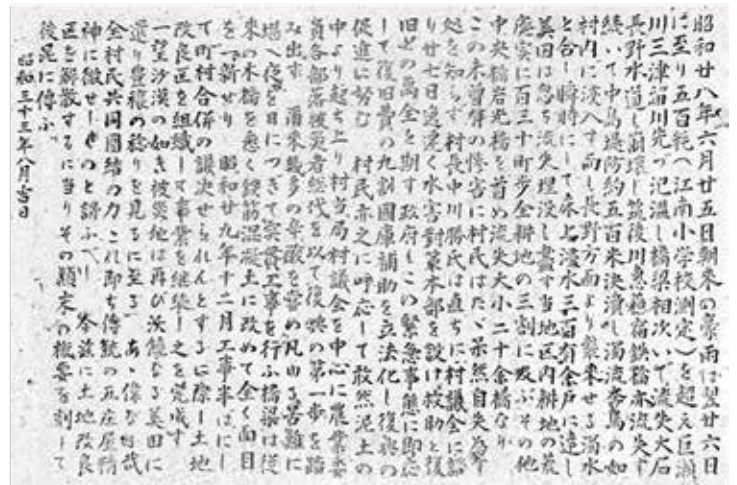 昭和廿八年六月廿五日朝来の豪雨は翌廿六日
に至り五百粍(江南小学校測定)を超え巨瀬
川三津留川先づ氾濫し橋梁相次いで流失大石
長野水道も崩壊し筑後川恵蘇宿鉄橋亦流失す
続いて中島堤防約五百米決潰し濁流奔馬の如
村内に浸入す而し長野方面より襲来せる濁水
と合し瞬時にして床上浸水三百有余戸に達し
美田は忽ち流失埋没し盡す当地区内耕地の荒
廃実に百三十町歩全耕地の三割に及ぶその他
中央橋岩光橋を首め流失大小二十余橋なり
この未曽有の惨害に村民はたゞ呆然自失為す
処を知らず 村長中川勝氏は直ちに村議会に諮
り廿七日逸早く水害対策本部を設け救助と復
旧との萬全を期す政府もこの緊急事態に即応
して復旧費の九割国庫補助を立法化し復興の
促進に努む 村民亦之に呼応して敢然泥土の
中より起ち上り村当局村議会を中心に農業委
員各部落被災者総代を以て復興の第一歩を踏
み出す 爾来幾多の辛酸を嘗め凡ゆる苦難に
堪へ夜を日につぎて災害工事を行ふ橋梁は従
来の木橋を悉く鉄筋混凝土に改めて全く面目
を一新せり 昭和廿九年十二月工事半ばにし
て町村合併の議決せられんとするに際し土地
改良区を組織して事業を継承し之を完成す
一望沙漠の如き被災地は再び沃饒なる美田に
還り豊穣の稔りを見るに至る あゝ偉なる哉
全村民共同団結の力これ即ち傳統の五庄屋精
神に徹せしものと謂ふべし 茲に土地改良
区を解散するに当りその顛末の概要を刻して
後昆に傳ふ
昭和三十三年八月吉日